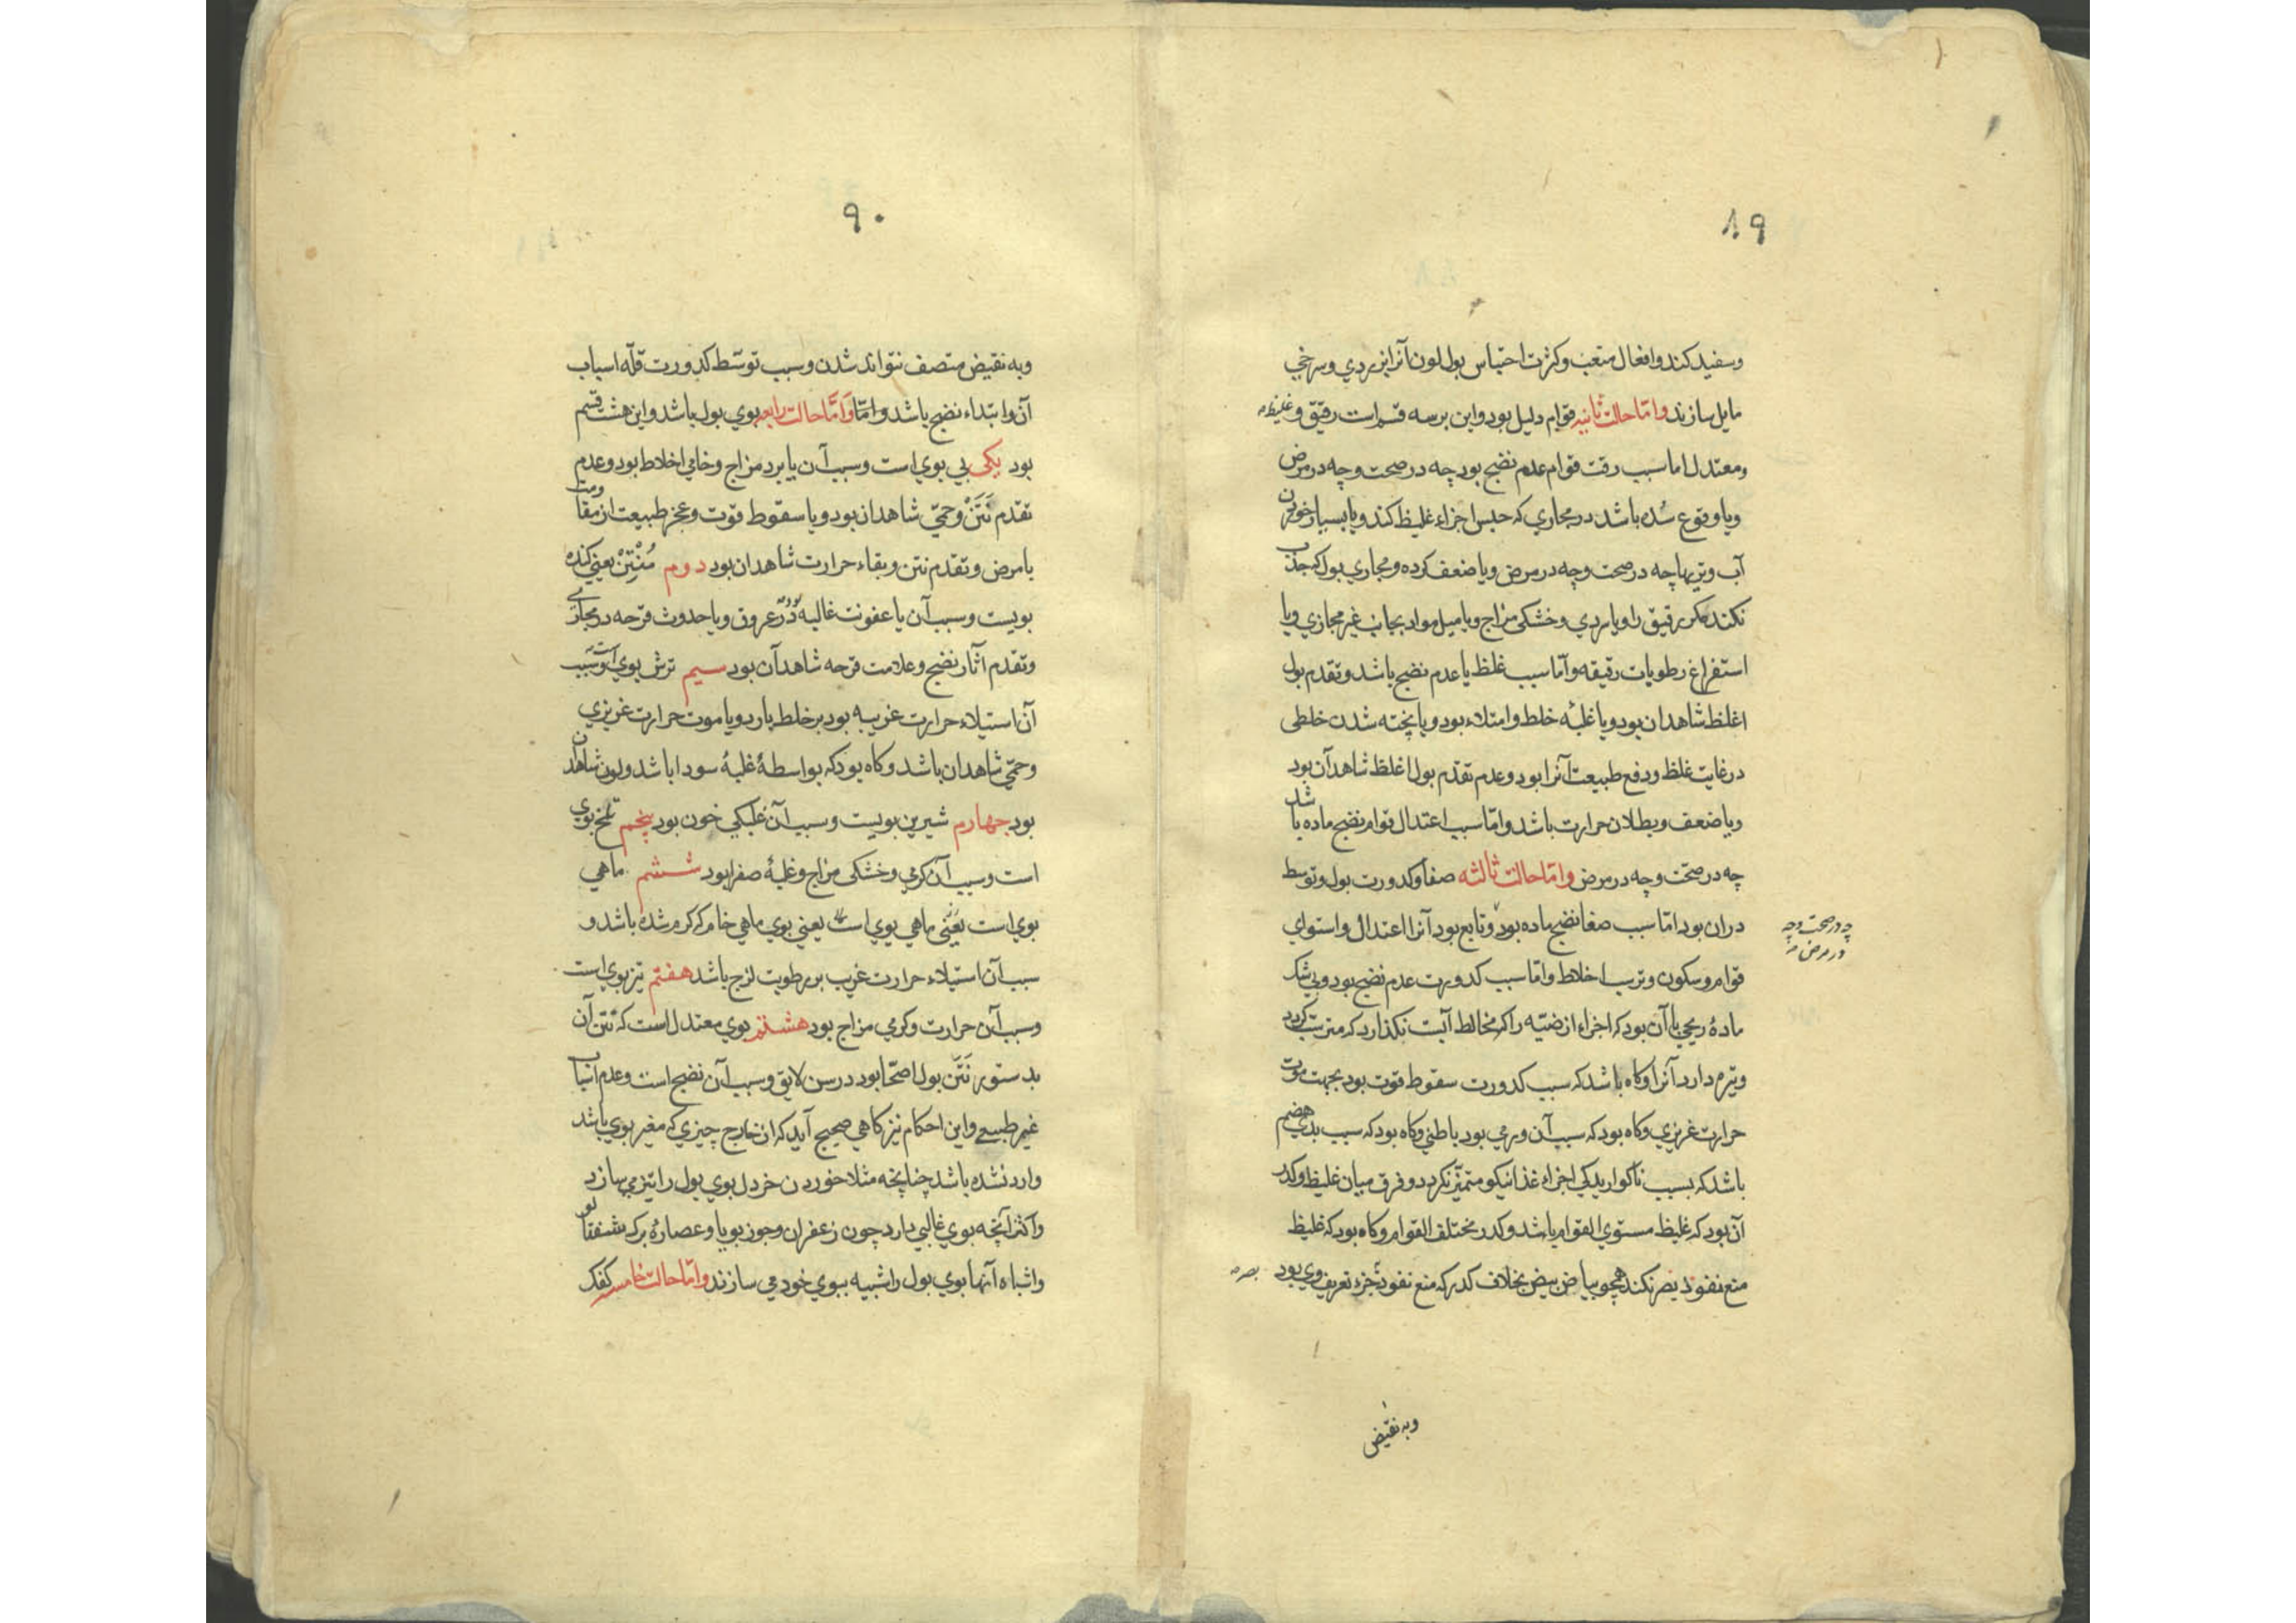 ۸۹
وسفید کند وافعال متعب وکثرت احتباس بول لون آنرا بزردي وسرخي
مایل سازند وامّا حالت ثانیه قوام دلیل بود واین بر سه قسم است رقیق وغلیظ
ومعتدل اما سبب رقت قوام عدم نضج بود چه در صحت وچه در مرض
ویا وقوع سُده باشد در مجاري که حبس اجزاء غلیظ کند ویا بسیار خوردن
آب وتریها چه در صحت وچه در مرض ویا ضعف کرده ومجاري بول که جذب
نکند مکر رقیق را ویا سردي وخشکی مزاج ویا میل مواد بجانب غیر مجازي ویا
استفراغ رطوبات رقیقه وامّا سبب غلظ یا عدم نضج باشد وتقدم بول
اغلظ شاهد ان بود ویا غلبهٔ خلط وامتلاء بود ویا پخته شدن خلطی
در غایت غلظ ودفع طبیعت آنرا بود وعدم تقدم بول اغلظ شاهد آن بود
ویا ضعف وبطلان حرارت باشد وامّا سبب اعتدال قوام نضج ماده باشد
چه در صحّت وچه در مرض وامّا حالت ثالثه صفا وکدورت بول وتوسط
دران بود امّا سبب صفا نضج ماده بود وتابع بود آنرا اعتدال واستواي
چه در صحت وچه
در مرض
قوام وسکون وترتیب اخلاط وامّا سبب کدورت عدم نضج بود وبي شک
مادهٔ ریحي با آن بود که اجزاء ارضیّه را که مخالط آبست نکذارد که مترتب کردد
وبرهم دارد آنرا وکاه باشد که سبب کدورت سقوط قوت بود بجهت موت
حرارت غریزي وکاه بود که سبب آن ورمي بود باطني وکاه بود که سبب بدي هضم
باشد که بسبب ناکواریدکي اجزاء غذا نیکو متمیّز نکردد وفرق میان غلیظ وکدر
آن بود که غلیظ مستوي القوام باشد وکدر مختلف القوام وکاه بود که غلیظ
منع نفوذ بصر نکند همچو بیاض بیض بخلاف کدر که منع نفوذ جزء تعریف وي بود
بصر
وبه نقیض
۹۰
وبه نقیض متصف نتواند شدن وسبب توسّط کدورت قلّه اسباب
آن وابتداء نضج باشد وامّا وَامَّا حالت رابعه بوي بول باشد واین هشت قسم
بود یکی بي بوي است وسبب آن یا برد مزاج وخامي اخلاط بود وعدم
تقدم نَتَنْ وحمیّ شاهد ان بود ویا سقوط قوّت وعجز طبیعت از مقاومت
با مرض وتقدم نتن وبقاء حرارت شاهد ان بود دوم مُنْتِنْ یعني کنده
بویست وسبب آن یا عفونت غالبه بود در عروق ویا حدوث قرحه در مجاري
وتقدم آثار نضج وعلامت قرحه شاهد آن بود سیم ترش بوي است وسبب
آن استیلاء حرارت غریبه بود بر خلط بارد ویا موت حرارت غریزي
وحمیّ شاهد ان باشد وکاه بود که بواسطهٔ غلبهٔ سودا باشد ولون شاهد آن
بود جهارم شیرین بویست وسبب آن غلبکي خون بود پنجم تلخ بوي
است وسبب آن کرمي وخشکی مزاج وغلبهٔ صفرا بود ششم ماهي
بوي است یَعْني ماهي بوي است یعني بوي ماهي خام که کرم شده باشد و
سبب آن استیلاء حرارت غریب بر رطوبت لزج باشد هفتم تیز بوي است
وسبب آن حرارت وکرمي مزاج بود هشتم بوي معتدل است که نَتَن آن
بدستور نَتَن بول اصحّا بود در سن لایق وسبب آن نضج است وعدم اسباب
غیر طبیعي واین احکام نیز کاهي صحیح آید که از خارج چیزي که مغیر بوي باشد
وارد نشده باشد چنانچه مثلا خوردن خردل بوي بول را تیز مي سازد
واکثر آنچه بوي غالبي دارد چون زعفران وجوز بویا وعصارهٔ برک شفتالو
واشباه آنها بوي بول را شبیه ببوي خود مي سازند وامّا حالت خامسه کفک